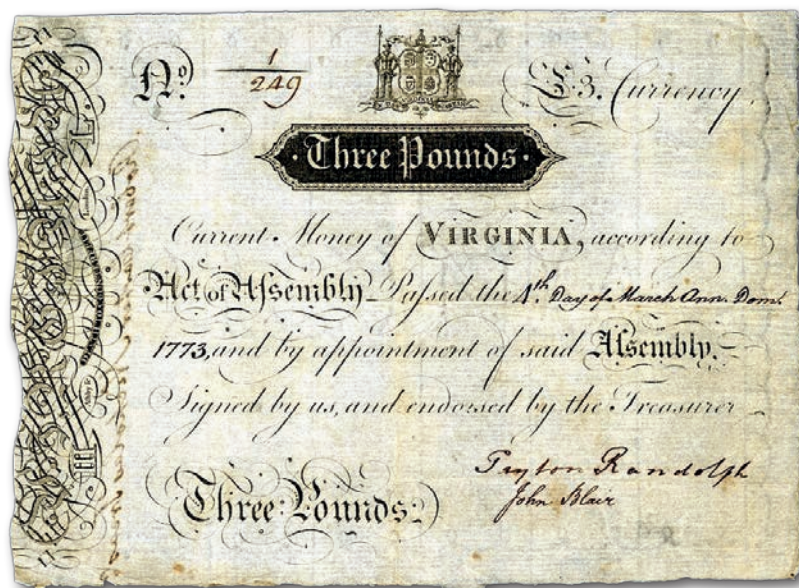 No. 1
249
£3. Currency.
·Three Pounds·
Current Money of VIRGINIA, according to
Act of Assembly Passed the 4th. Day of March Ann. Dom.
1773, and by appointment of said Assembly.
Signed by us, and endorsed by the Treasurer
Peyton Randolph
John Blair
Three Pounds: